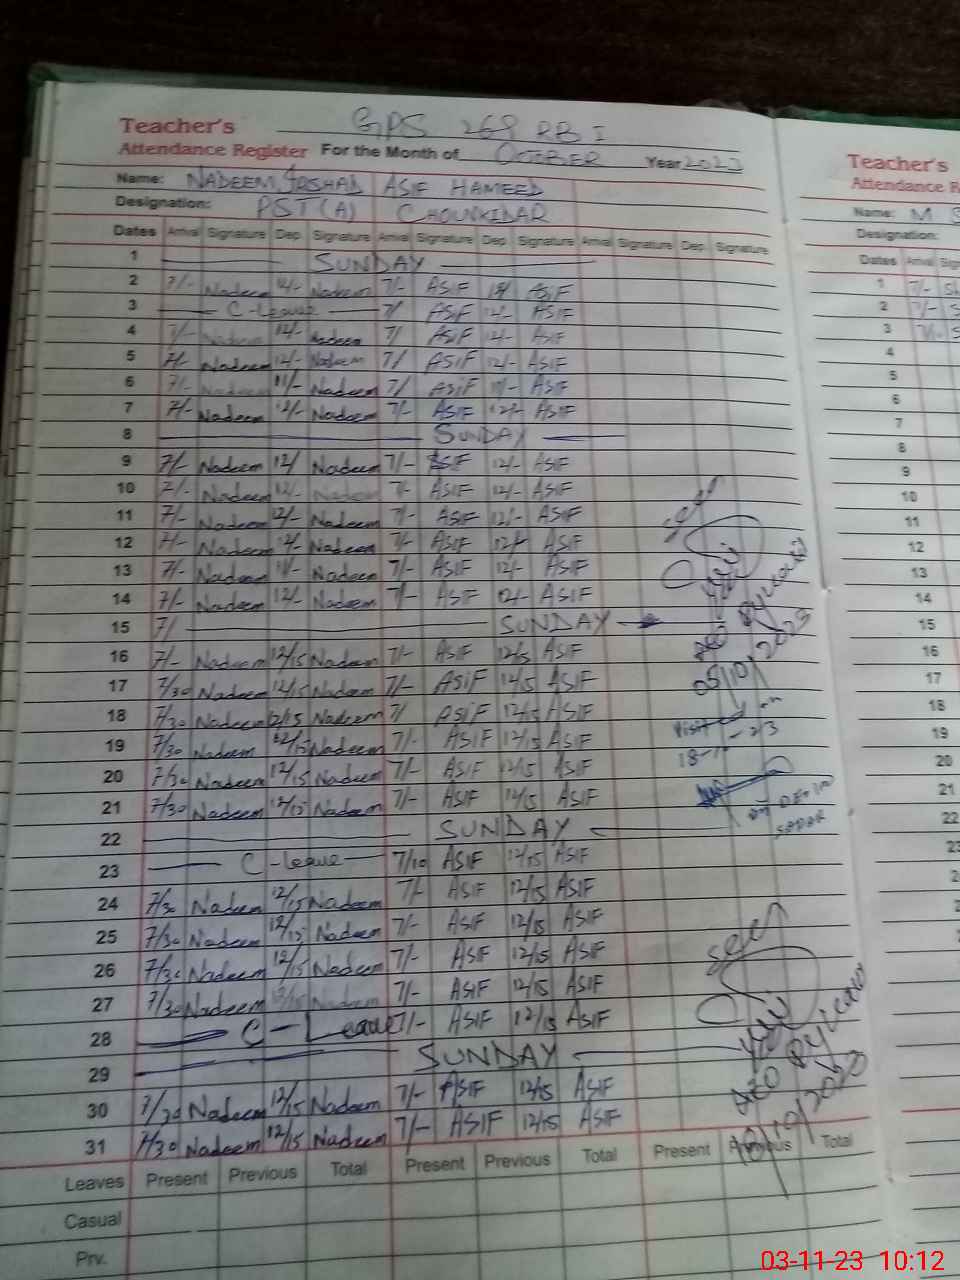 Teacher's GPS 268 RB I
Attendance Register For the Month of OCTOBER Year 2023
Name: NADEEM IRSHAD ASIF HAMEED
Designation: PST(A) CHOUNKIDAR
Dates Arrival Signature Dep. Signature Arrival Signature Dep. Signature Arrival Signature Dep. Signature
1 SUNDAY
2 7/- Nadeem 12/- Nadeem 7/- ASIF 12/ ASIF
3 C-Leave 7/ ASIF 12/- ASIF
4 7/- Nadeem 12/- Nadeem 7/ ASIF 12/- ASIF
5 7/- Nadeem 12/- Nadeem 7/ ASIF 12/- ASIF
6 7/- Nadeem 11/- Nadeem 7/ ASIF 11/- ASIF
7 7/- Nadeem 12/- Nadeem 7/- ASIF 12/- ASIF
8 SUNDAY
9 7/- Nadeem 12/ Nadeem 7/- ASIF 12/- ASIF
10 7/- Nadeem 12/- Nadeem 7/- ASIF 12/- ASIF
11 7/- Nadeem 12/- Nadeem 7/- ASIF 12/- ASIF
12 7/- Nadeem 12/- Nadeem 7/- ASIF 12/- ASIF
13 7/- Nadeem 11/- Nadeem 7/- ASIF 12/- ASIF
14 7/- Nadeem 12/- Nadeem 7/- ASIF 12/- ASIF
15 7/ SUNDAY
16 7/- Nadeem 12/15 Nadeem 7/- ASIF 12/15 ASIF
17 7/30 Nadeem 12/15 Nadeem 7/- ASIF 12/15 ASIF
18 7/30 Nadeem 12/15 Nadeem 7/ ASIF 12/15 ASIF
19 7/30 Nadeem 12/15 Nadeem 7/- ASIF 12/15 ASIF
20 7/30 Nadeem 12/15 Nadeem 7/- ASIF 12/15 ASIF
21 7/30 Nadeem 12/15 Nadeem 7/- ASIF 12/15 ASIF
22 SUNDAY
23 C-Leave 7/10 ASIF 12/15 ASIF
24 7/30 Nadeem 12/15 Nadeem 7/- ASIF 12/15 ASIF
25 7/30 Nadeem 12/15 Nadeem 7/- ASIF 12/15 ASIF
26 7/30 Nadeem 12/15 Nadeem 7/- ASIF 12/15 ASIF
27 7/30 Nadeem 12/15 Nadeem 7/- ASIF 12/15 ASIF
28 C-Leave 7/- ASIF 12/15 ASIF
29 SUNDAY
30 7/30 Nadeem 12/15 Nadeem 7/- ASIF 12/15 ASIF
31 7/30 Nadeem 12/15 Nadeem 7/- ASIF 12/15 ASIF
Leaves Present Previous Total Present Previous Total Present Previous Total
Casual
Prv.
seen
AEO
05/10/2023
Visit on
seen
AEO
Teacher's
Attendance R
Name: M
Designation:
Dates Arrival
1 7/-
2 7/-
3 7/-
4
5
6
7
8
9
10
11
12
13
14
15
16
17
18
19
20
21
22
03-11-23 10:12